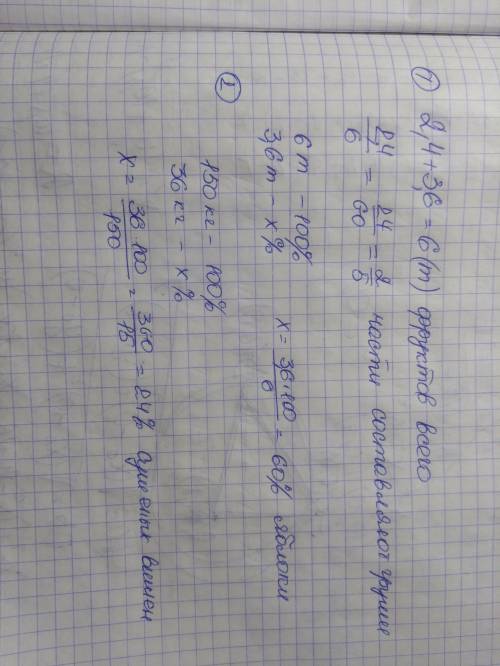 ① 2,4 + 3,6 = 6 (т) фруктов всего
2,4/6 = 24/60 = 2/5 части составляют груши
6 т – 100%
3,6 т – x%
x = 3,6·100/6 = 60% яблоки
② 150 кг – 100%
36 кг – x%
x = 36·100/150 = 360/15 = 24% сушеных вишен